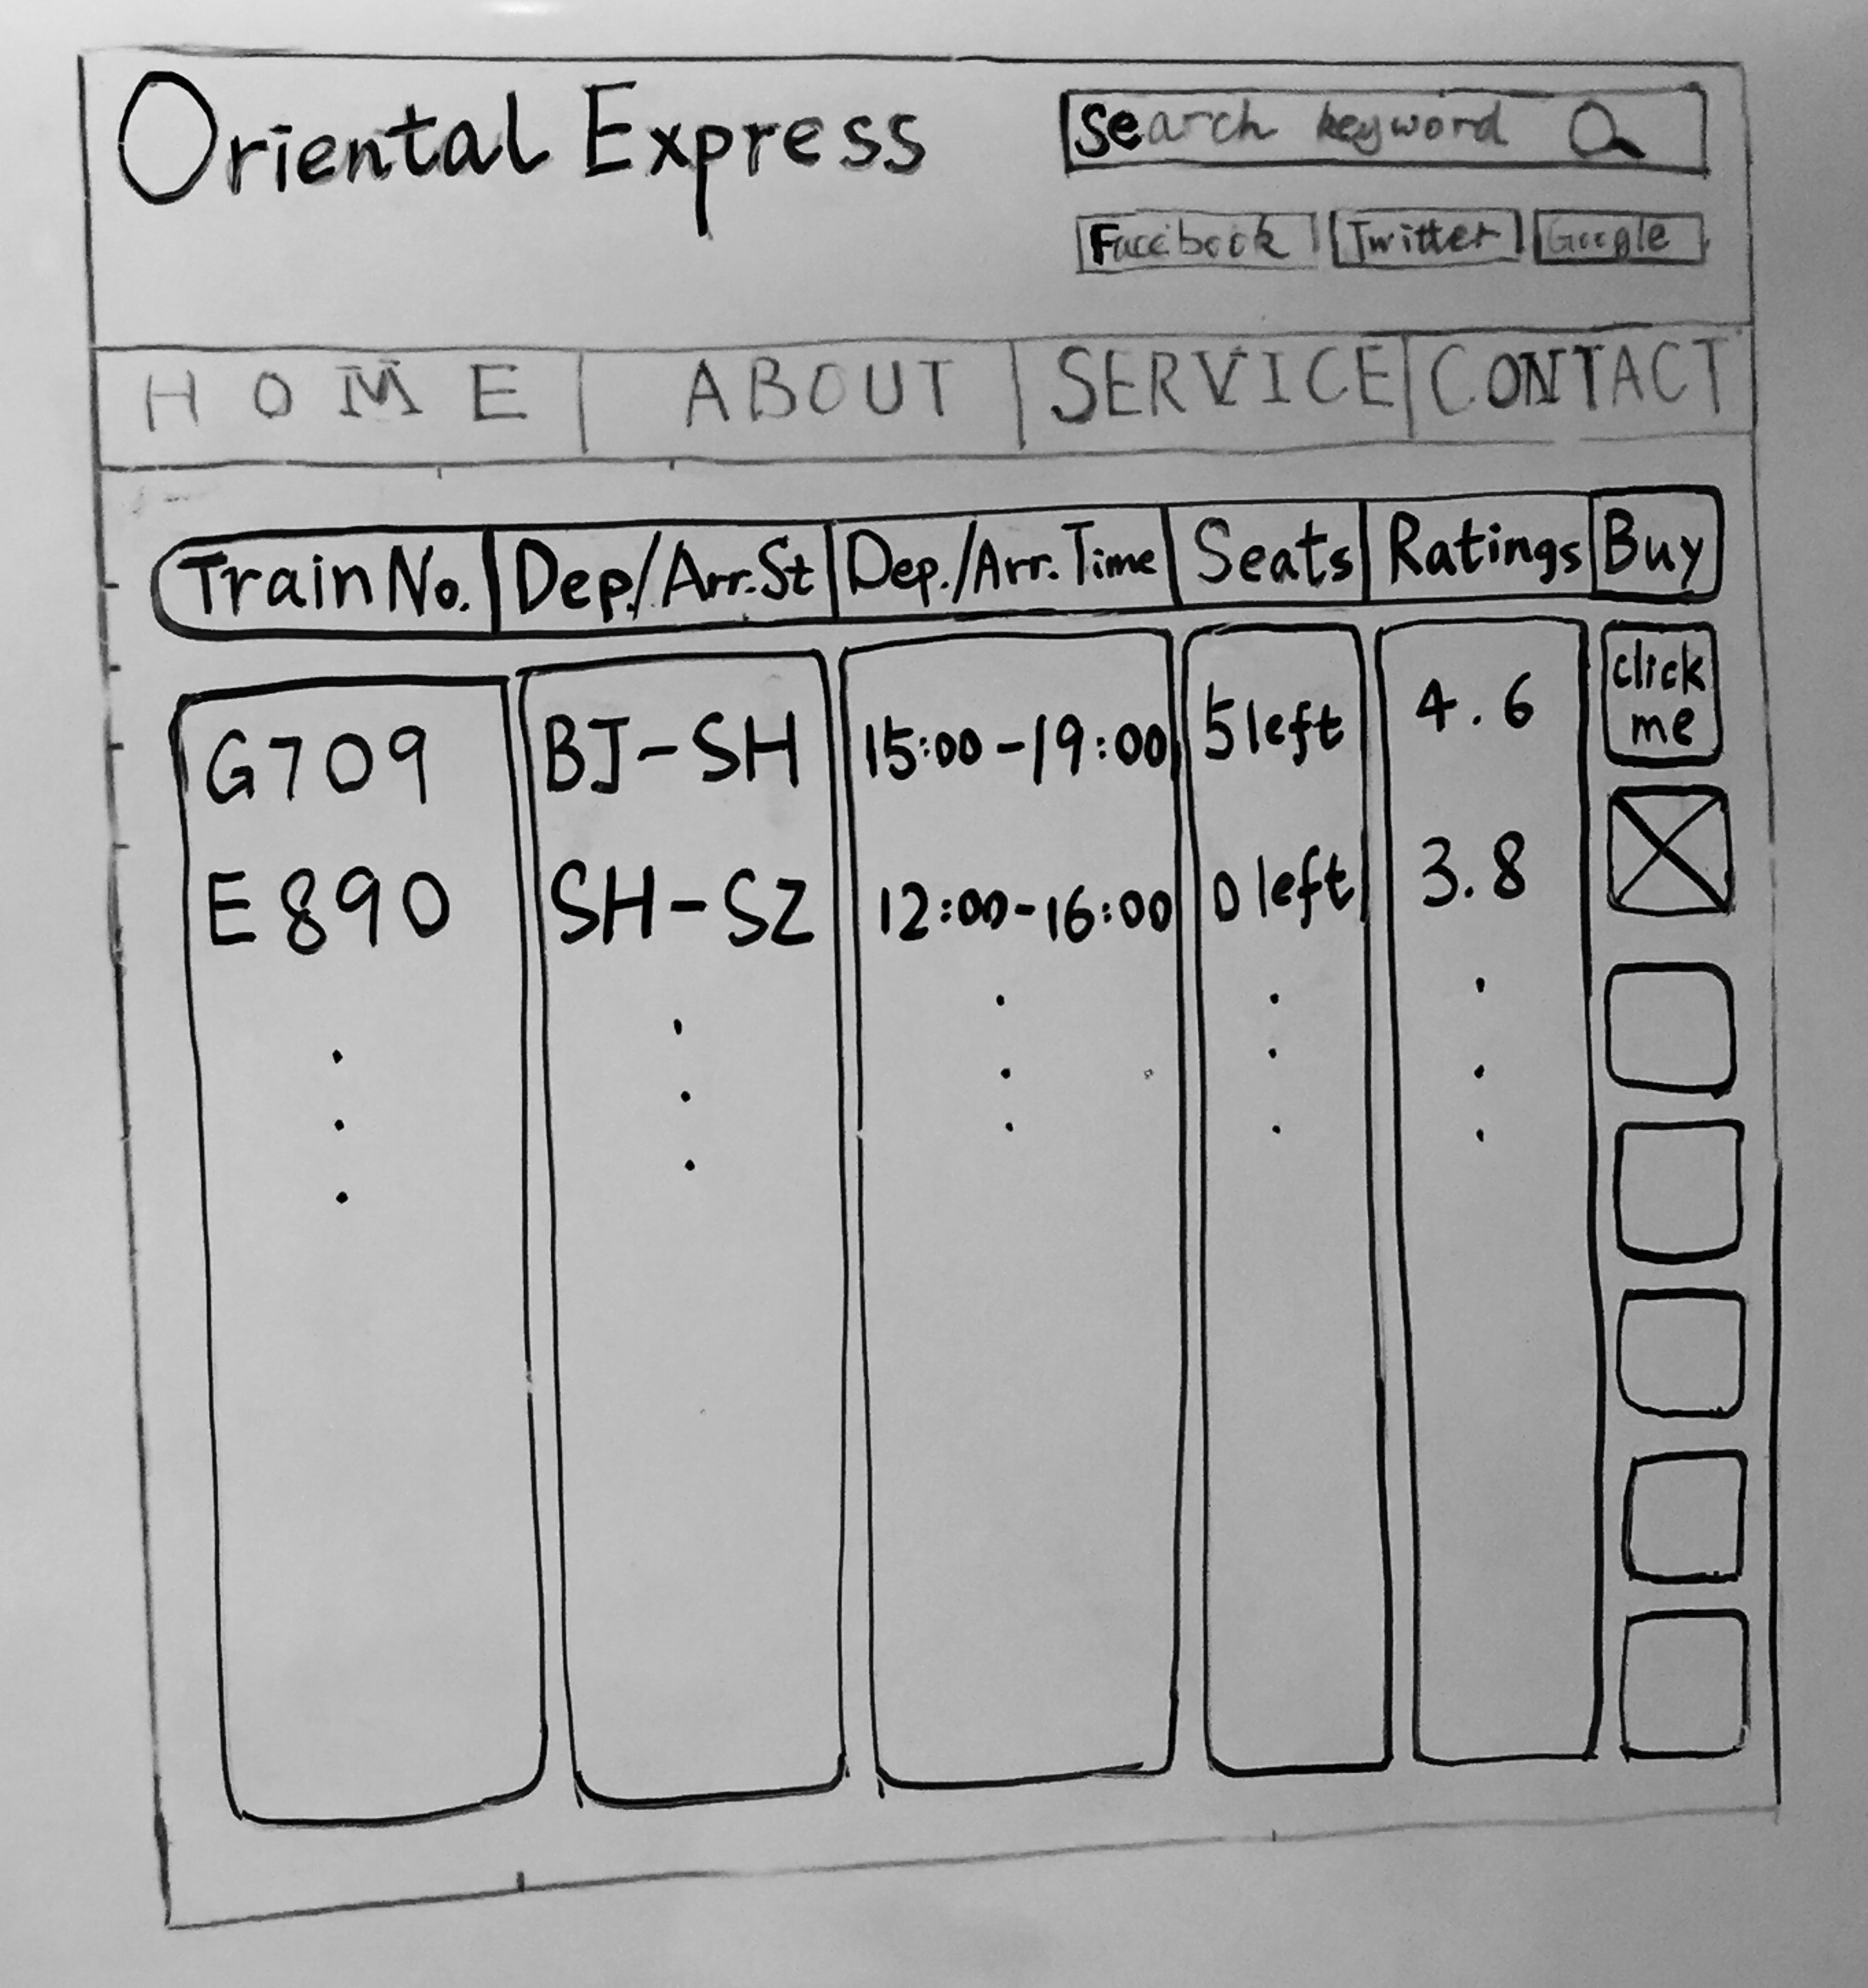 Oriental Express
Search keyword
Facebook Twitter Google
HOME ABOUT SERVICE CONTACT
Train No. Dep./Arr.St Dep./Arr. Time Seats Ratings Buy
G709 BJ-SH 15:00-19:00 5 left 4.6 click me
E890 SH-SZ 12:00-16:00 0 left 3.8